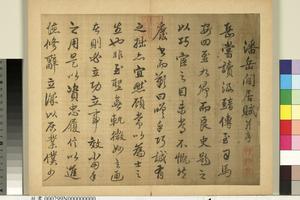 潘岳閒居賦并序
岳嘗讀汲黯傳至司馬
安四至九卿而良史題之
以巧宦之目未嘗不慨然
廢書而歎曰嗟乎巧誠有
之拙亦宜然顧常以為士之
生也非至聖無軌微妙玄通
者則必立功立事效當年
之用是以資忠履信以進
德修辭立誠以居業僕少